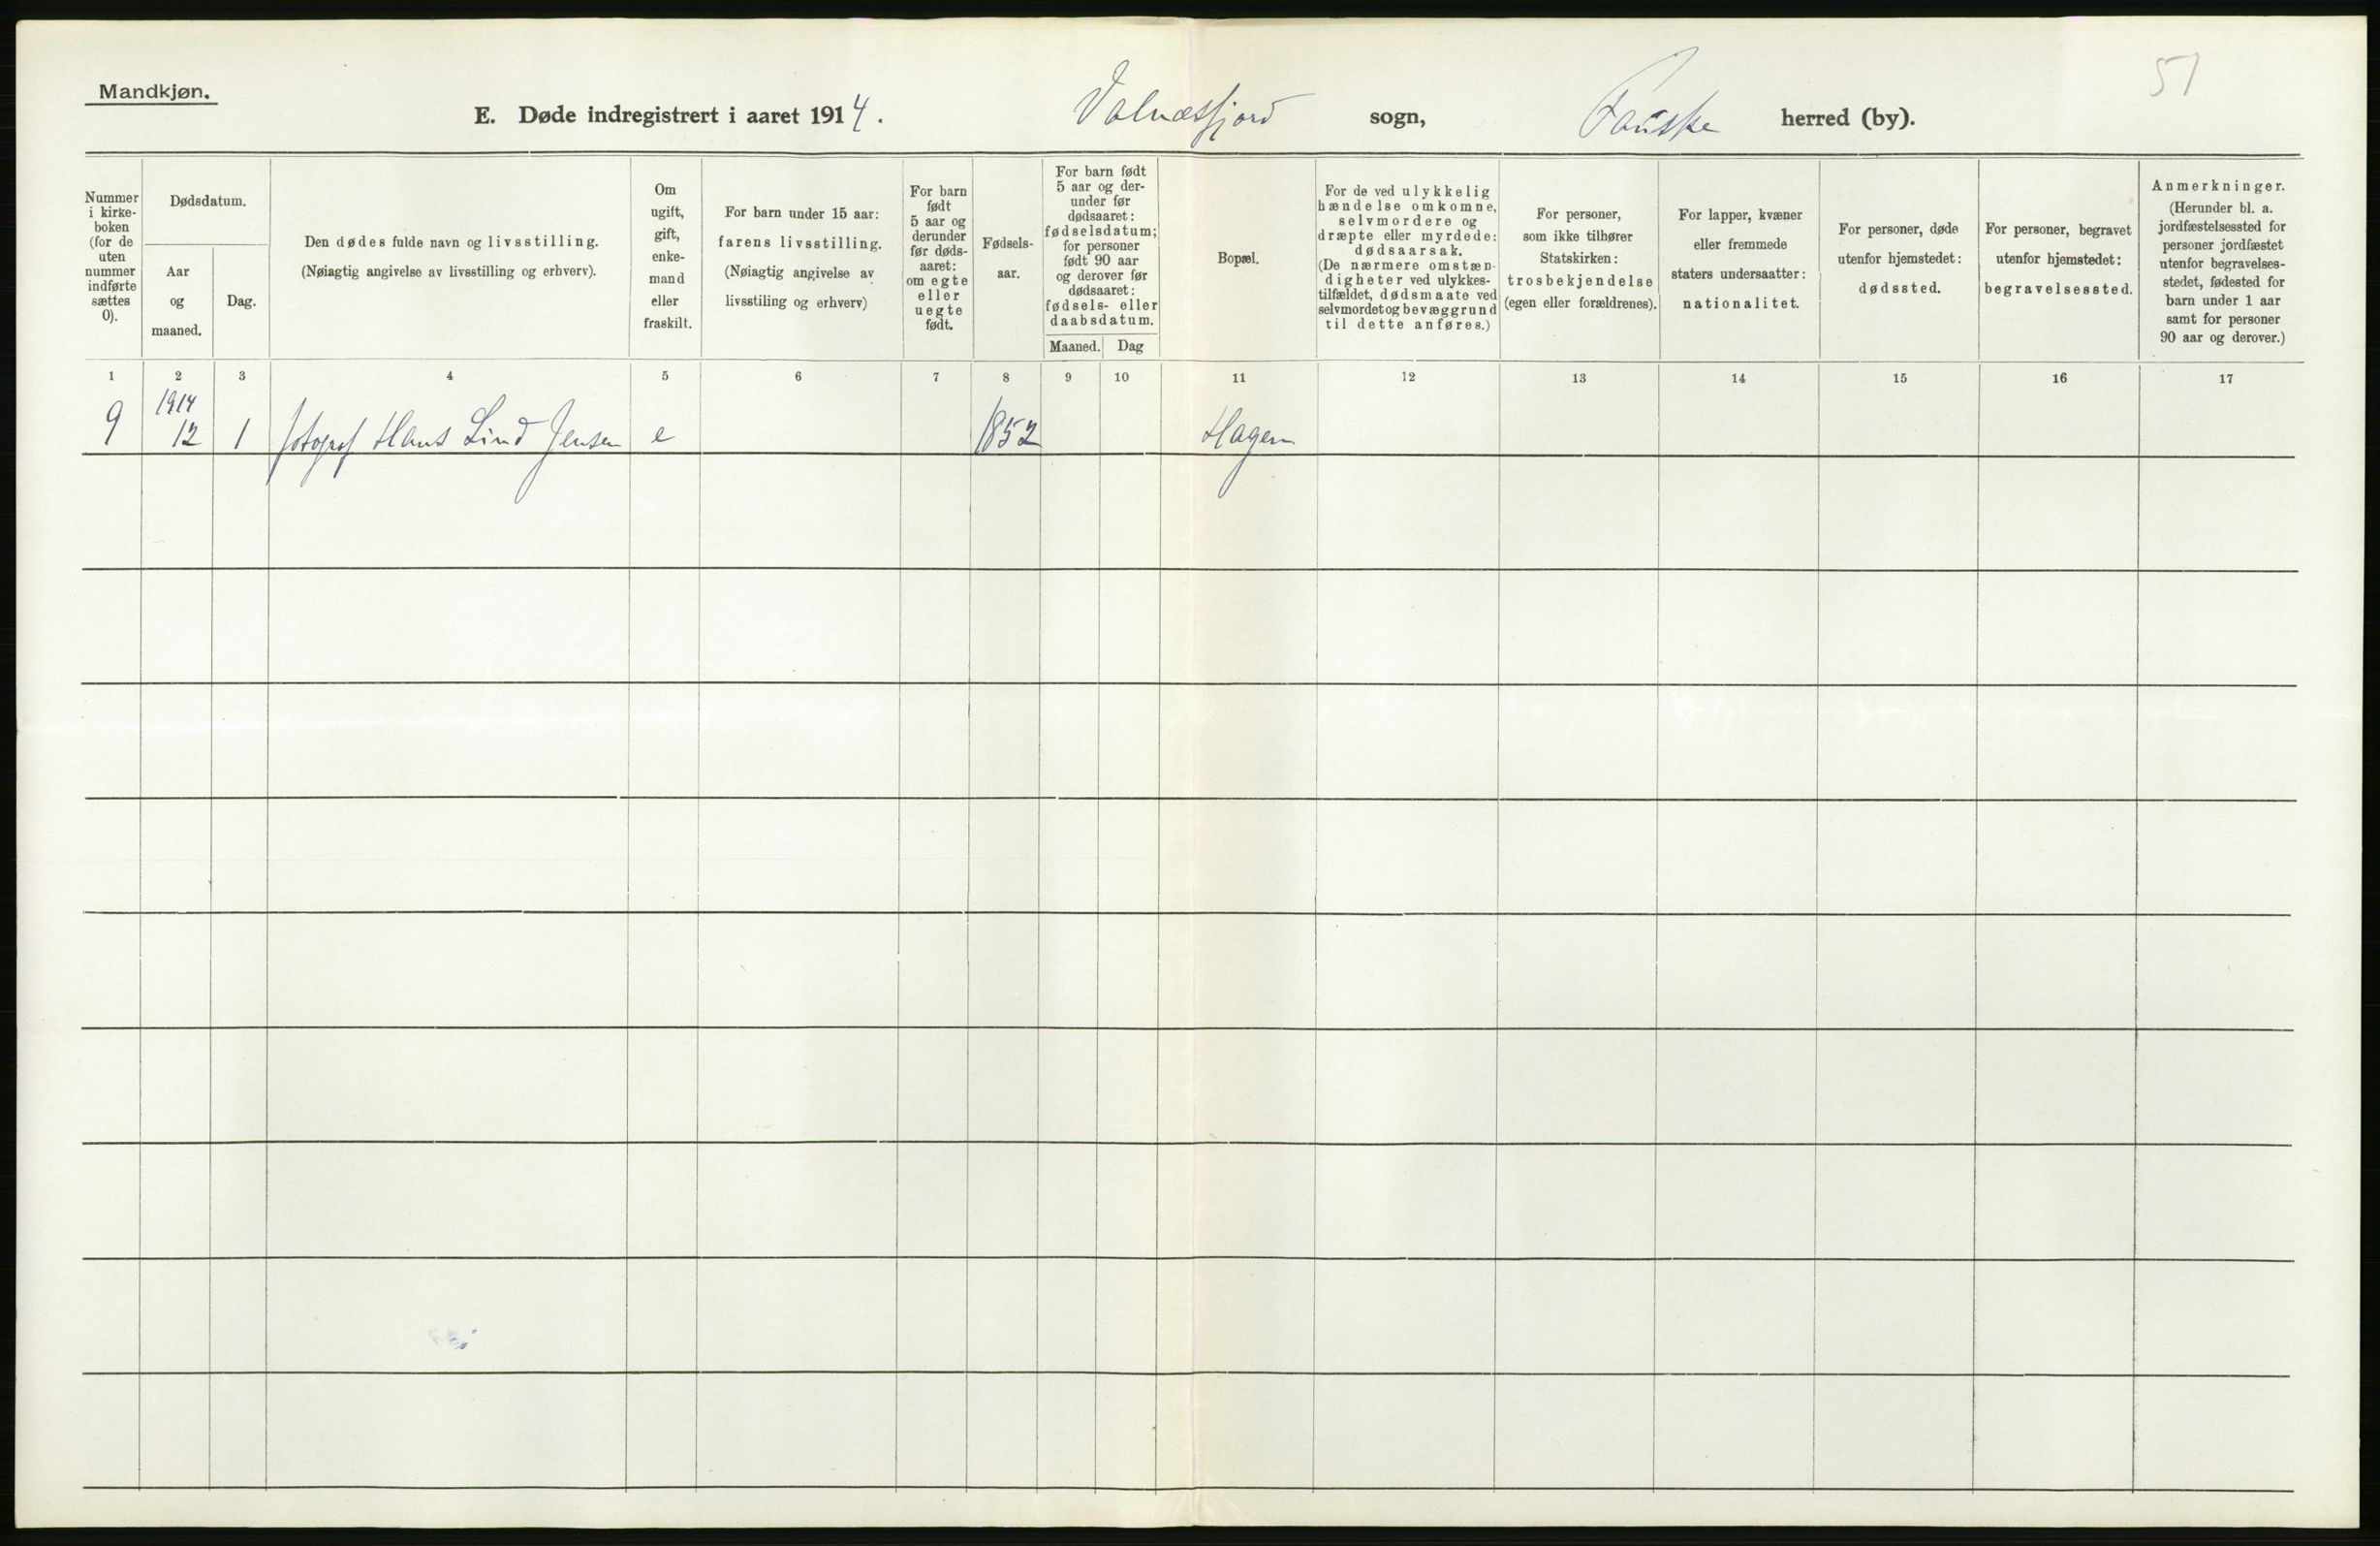 51
Mandkjøn.
E. Døde indregistrert i aaret 1914. Valnæsfjord sogn, Fauske herred (by).
Nummer
i kirke-
boken
(for de
uten
nummer
indførte
sættes
0).
Dødsdatum.
Aar
og
maaned.
Dag.
Den dødes fulde navn og livsstilling.
(Nøiagtig angivelse av livsstilling og erhverv).
Om
ugift,
gift,
enke-
mand
eller
fraskilt.
For barn under 15 aar:
farens livsstilling.
(Nøiagtig angivelse av
livsstiling og erhverv)
For barn
født
5 aar og
derunder
før døds-
aaret:
om egte
eller
uegte
født.
Fødsels-
aar.
For barn født
5 aar og der-
under før
dødsaaret:
fødselsdatum;
for personer
født 90 aar
og derover før
dødsaaret:
fødsels- eller
daabsdatum.
Maaned. Dag
Bopæl.
For de ved ulykkelig
hændelse omkomne,
selvmordere og
dræpte eller myrdede:
dødsaarsak.
(De nærmere omstæn-
digheter ved ulykkes-
tilfældet, dødsmaate ved
selvmordet og bevæggrund
til dette anføres.)
For personer,
som ikke tilhører
Statskirken:
trosbekjendelse
(egen eller forældrenes).
For lapper, kvæner
eller fremmede
staters undersaatter:
nationalitet.
For personer, døde
utenfor hjemstedet:
dødssted.
For personer, begravet
utenfor hjemstedet:
begravelsessted.
Anmerkninger.
(Herunder bl. a.
jordfæstelsessted for
personer jordfæstet
utenfor begravelses-
stedet, fødested for
barn under 1 aar
samt for personer
90 aar og derover.)
1 2 3 4 5 6 7 8 9 10 11 12 13 14 15 16 17
1914
9 12 1 fotograf Hans Lind Jensen e 1852 Hagen